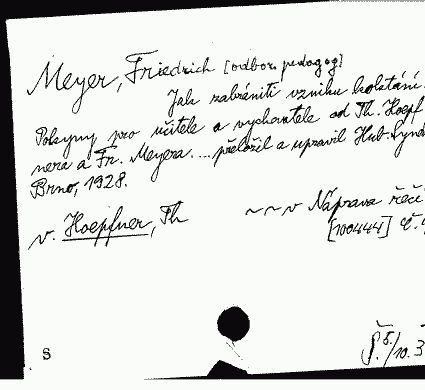 Meyer, Friedrich [odbor. pedagog]
Jak zabrániti vzniku koktání.
Pokyny pro učitele a vychovatele od Th. Hoepf
nera a Fr. Meyera. ... přeložil a upravil Hub. Synd
Brno, 1928.
v. Hoepfner, Th
~ ~ v Náprava řeči
[100444] č.
S
Š./10.3